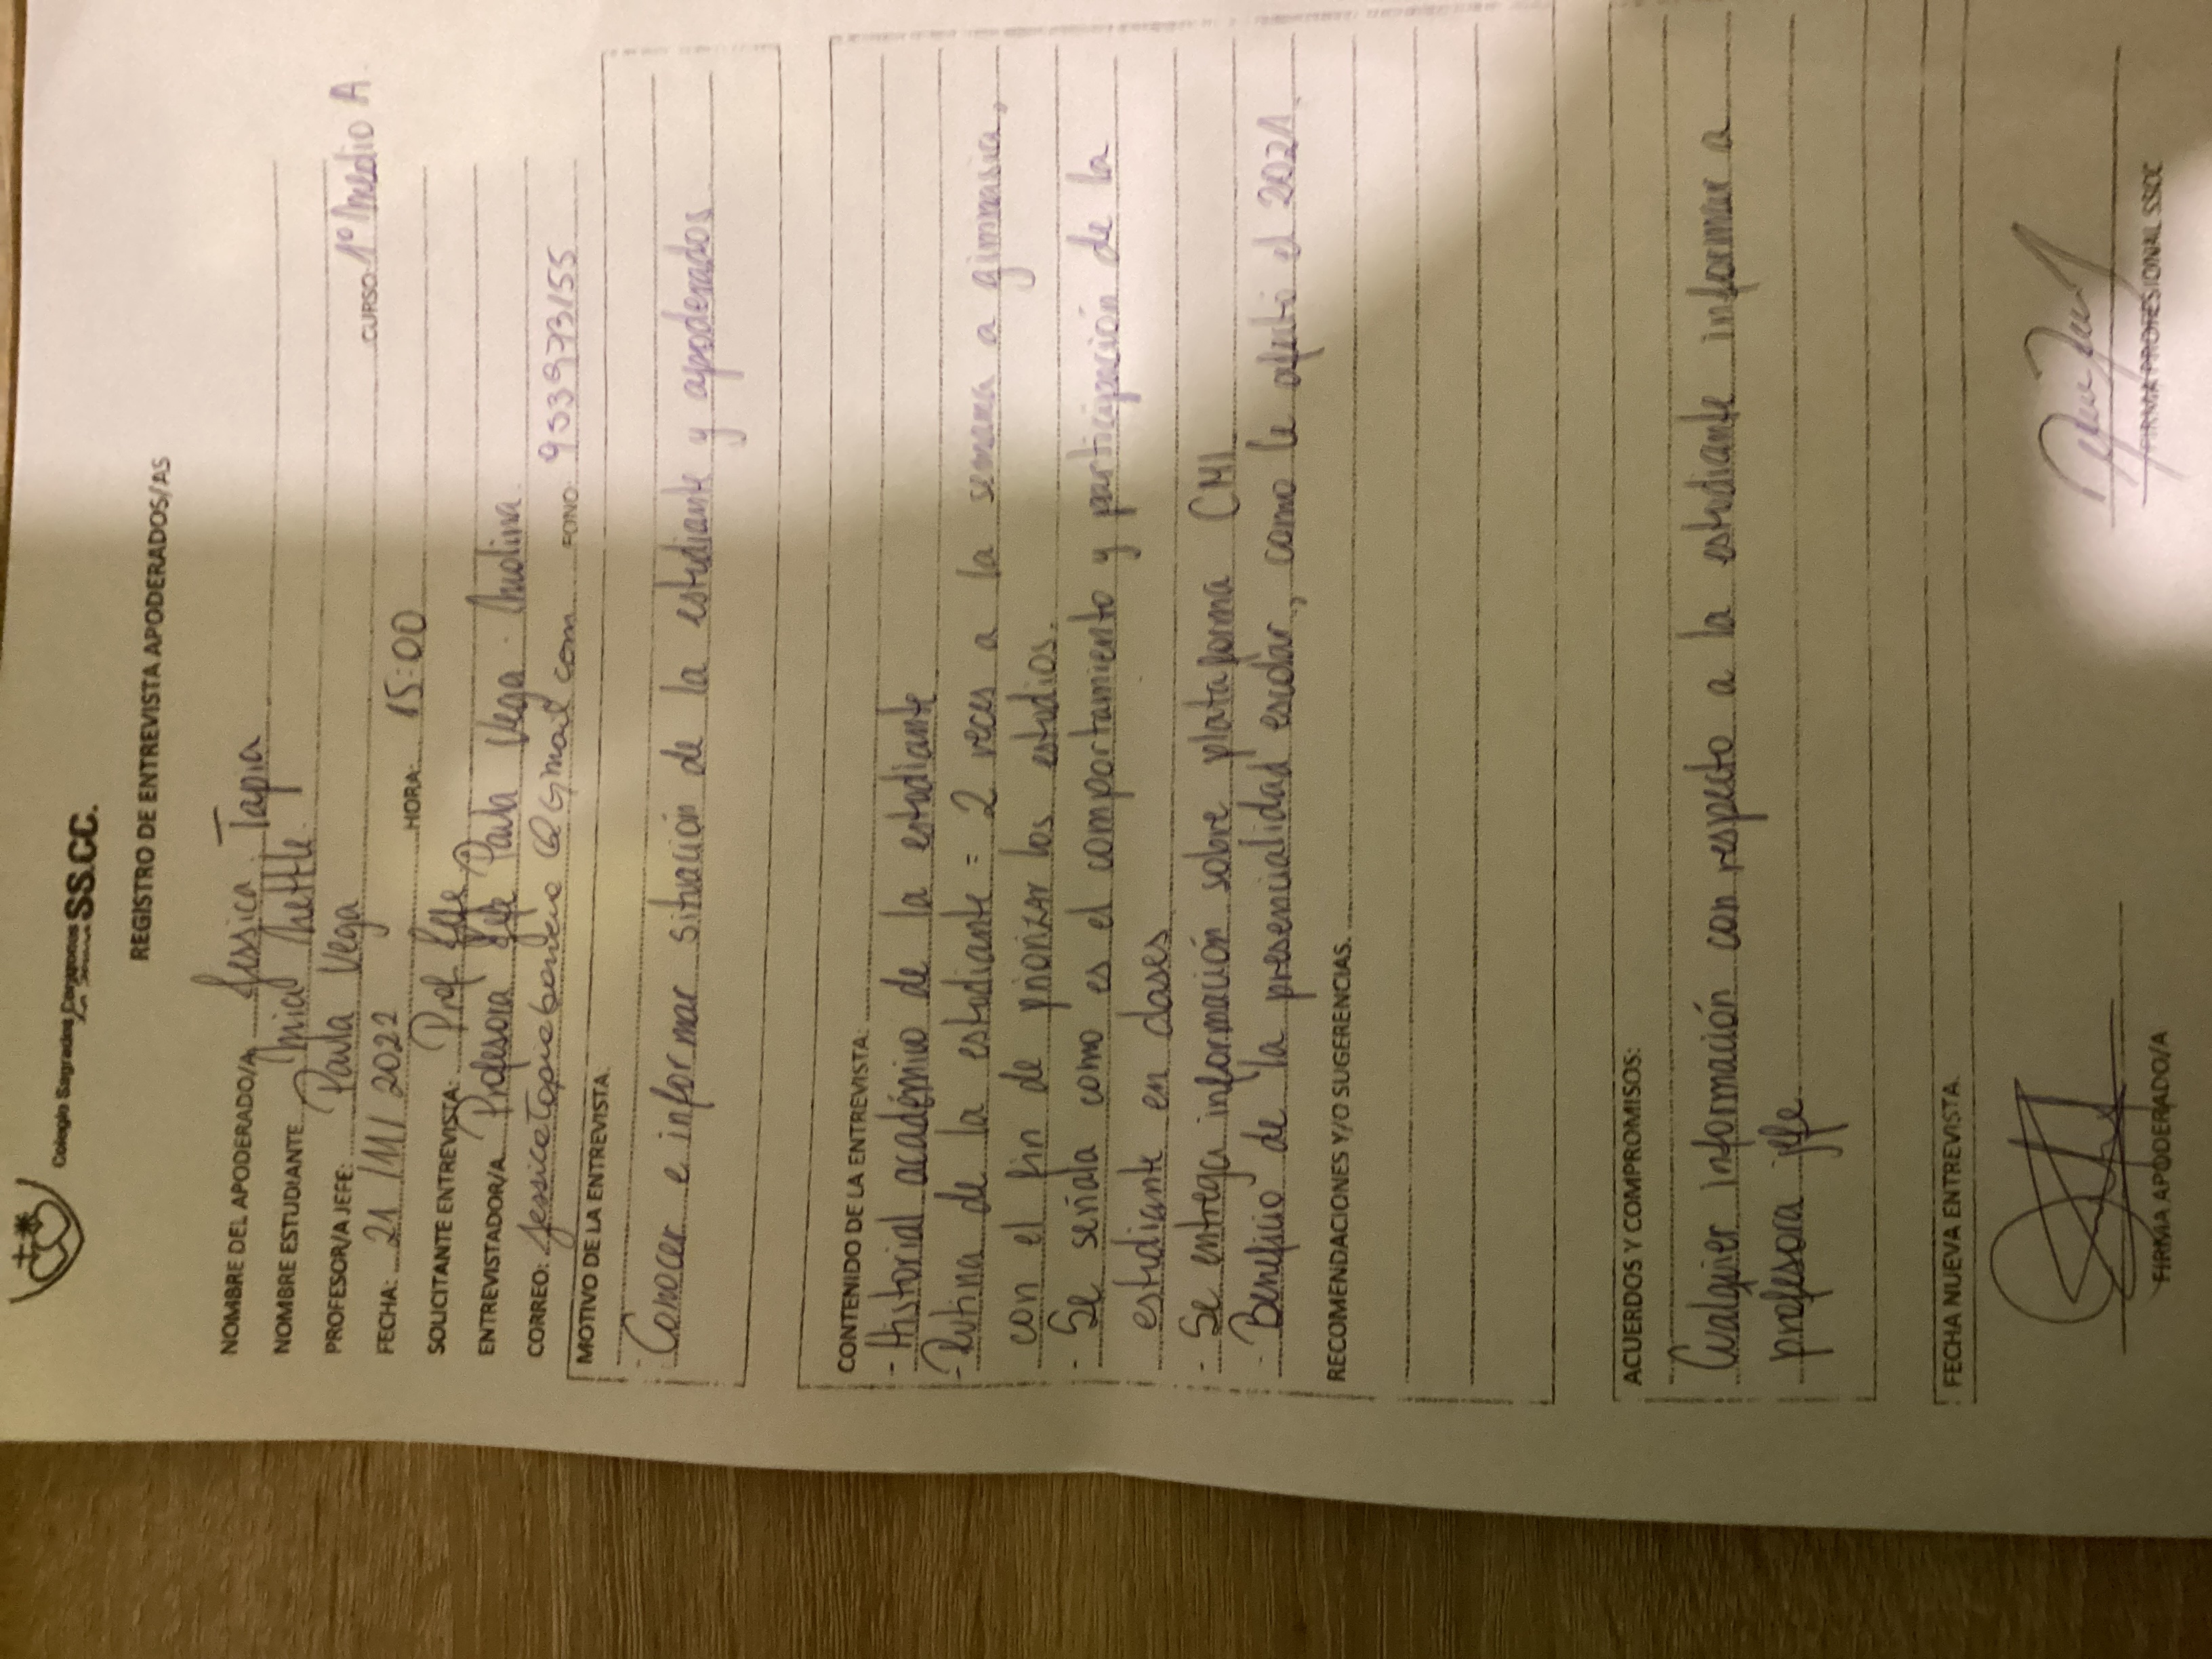 Colegio Sagrados Corazones SS.CC.
REGISTRO DE ENTREVISTA APODERADOS/AS
NOMBRE DEL APODERADO/A: Jessica Tapia
NOMBRE ESTUDIANTE
PROFESOR/A JEFE: Paula Vega CURSO: 1º Medio A
FECHA: 21 2022 HORA: 15:00
SOLICITANTE ENTREVISTA: Prof Jefe
ENTREVISTADOR/A Profesora Jefe Paula Vega Molina.
CORREO: @Gmail.com FONO: 953973155
MOTIVO DE LA ENTREVISTA.
- Conocer e informar situación de la estudiante y apoderados
CONTENIDO DE LA ENTREVISTA:
- Historial académino de la estudiante
- Rutina de la estudiante = 2 veces a la semana a gimnasia,
con el fin de priorizar los estudios.
- Se señala como es el comportamiento y participación de la
estudiante en clases
- Se entrega información sobre plataforma CMI
- Beneficio de la presencialidad escolar, como le afectó el 2021.
RECOMENDACIONES Y/O SUGERENCIAS.
ACUERDOS Y COMPROMISOS:
Cualquier información con respecto a la estudiante informar a
profesora jefe
FECHA NUEVA ENTREVISTA.
FIRMA APODERADO/A FIRMA PROFESIONAL SSCC